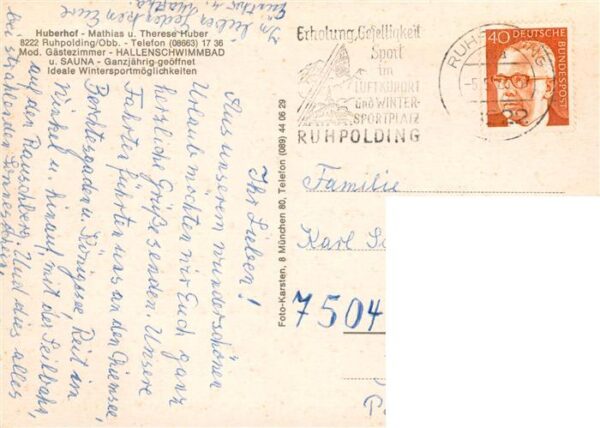 Huberhof - Mathias u. Therese Huber
8222 Ruhpolding/Obb. - Telefon (08663) 17 36
Mod. Gästezimmer - HALLENSCHWIMMBAD
u. SAUNA - Ganzjährig geöffnet
Ideale Wintersportmöglichkeiten
Ihr Lieben!
Aus unserem wunderschönen
Urlaub möchten wir Euch ganz
herzliche Grüße senden. Unsere
Fahrten führten uns an den Chiemsee,
Berchtesgaden u. Königssee, Reit im
Winkel u. hinauf mit der Seilbahn,
auf den Rauschberg. Und dies alles
bei strahlenden Sonnenschein.
In lieber Gedenken Eure
Foto-Karsten, 8 München 80, Telefon (089) 44 06 29
Erholung, Geselligkeit
Sport
im
LUFTKURORT
und WINTER-
SPORTPLATZ
RUHPOLDING
40 DEUTSCHE
BUNDESPOST
Familie
Karl
7504